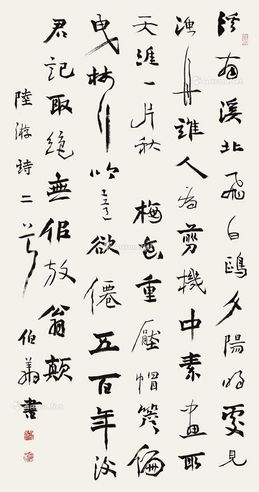 溪南溪北飛白鷗夕陽明處見
漁舟誰人為剪機中素畫取
天涯一片秋 梅花重壓帽簷偏
曳杖行吟意欲僊五百年後
君記取絕無佀放翁顛
陸游詩二首 伯 書